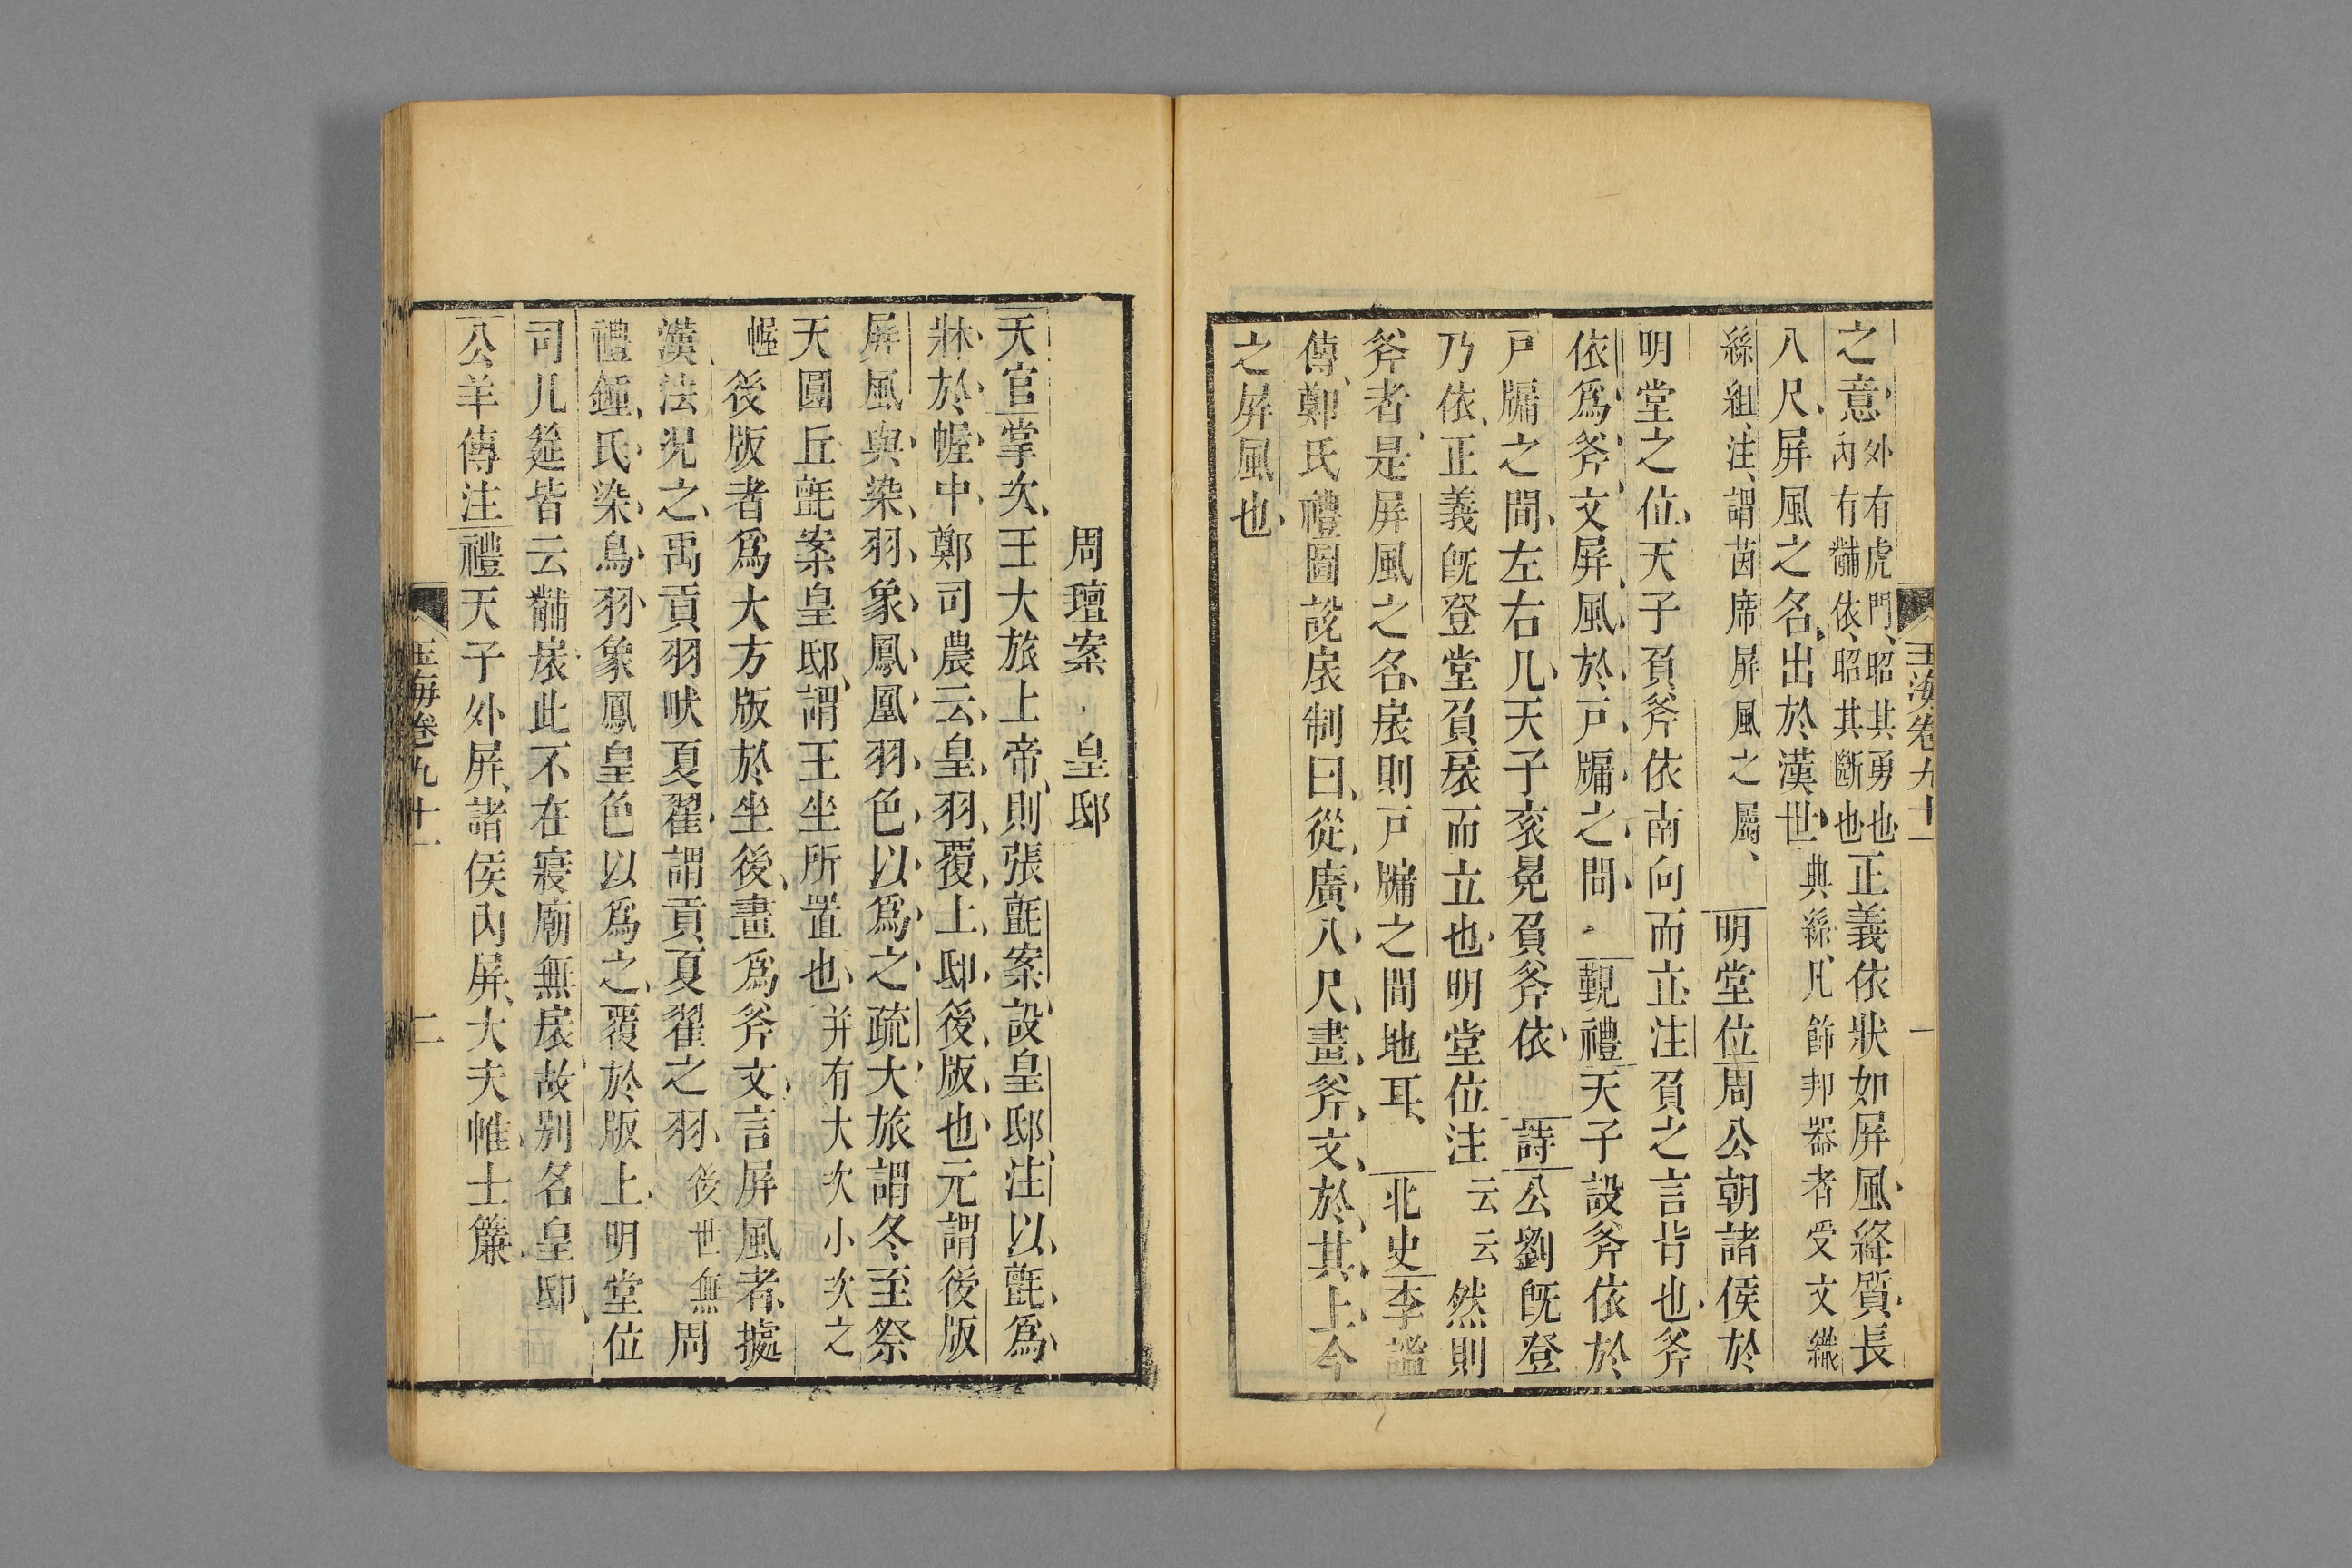 玉海卷九十一 一
之意外有虎門昭其勇也內有黼依昭其斷也正義依狀如屏風絳質長
八尺屏風之名出於漢世典絲凡飾邦器者受文織
絲組注謂茵席屏風之屬明堂位周公朝諸侯於
明堂之位天子負斧依南向而立注負之言背也斧
依爲斧文屏風於戶牖之間覲禮天子設斧依於
戶牖之間左右几天子袞冕負斧依詩公劉旣登
乃依正義旣登堂負扆而立也明堂位注云云然則
斧者是屏風之名扆則戶牖之間地耳北史李謐
傳鄭氏禮圖說扆制曰從廣八尺畫斧文於其上今
之屏風也
周壇案 皇邸
天官掌次王大旅上帝則張氈案設皇邸注以氈爲
牀於幄中鄭司農云皇羽覆上邸後版也元謂後版
屏風與染羽象鳳凰羽色以爲之疏大旅謂冬至祭
天圜丘氈案皇邸謂王坐所置也并有大次小次之
幄後版者爲大方版於坐後畫爲斧文言屏風者據
漢法況之禹貢羽畎夏翟謂貢夏翟之羽後世無周
禮鍾氏染鳥羽象鳳皇色以爲之覆於版上明堂位
司几筵皆云黼扆此不在寢廟無扆故別名皇邸
公羊傳注禮天子外屏諸侯內屏大夫帷士簾
玉海卷九十一 二